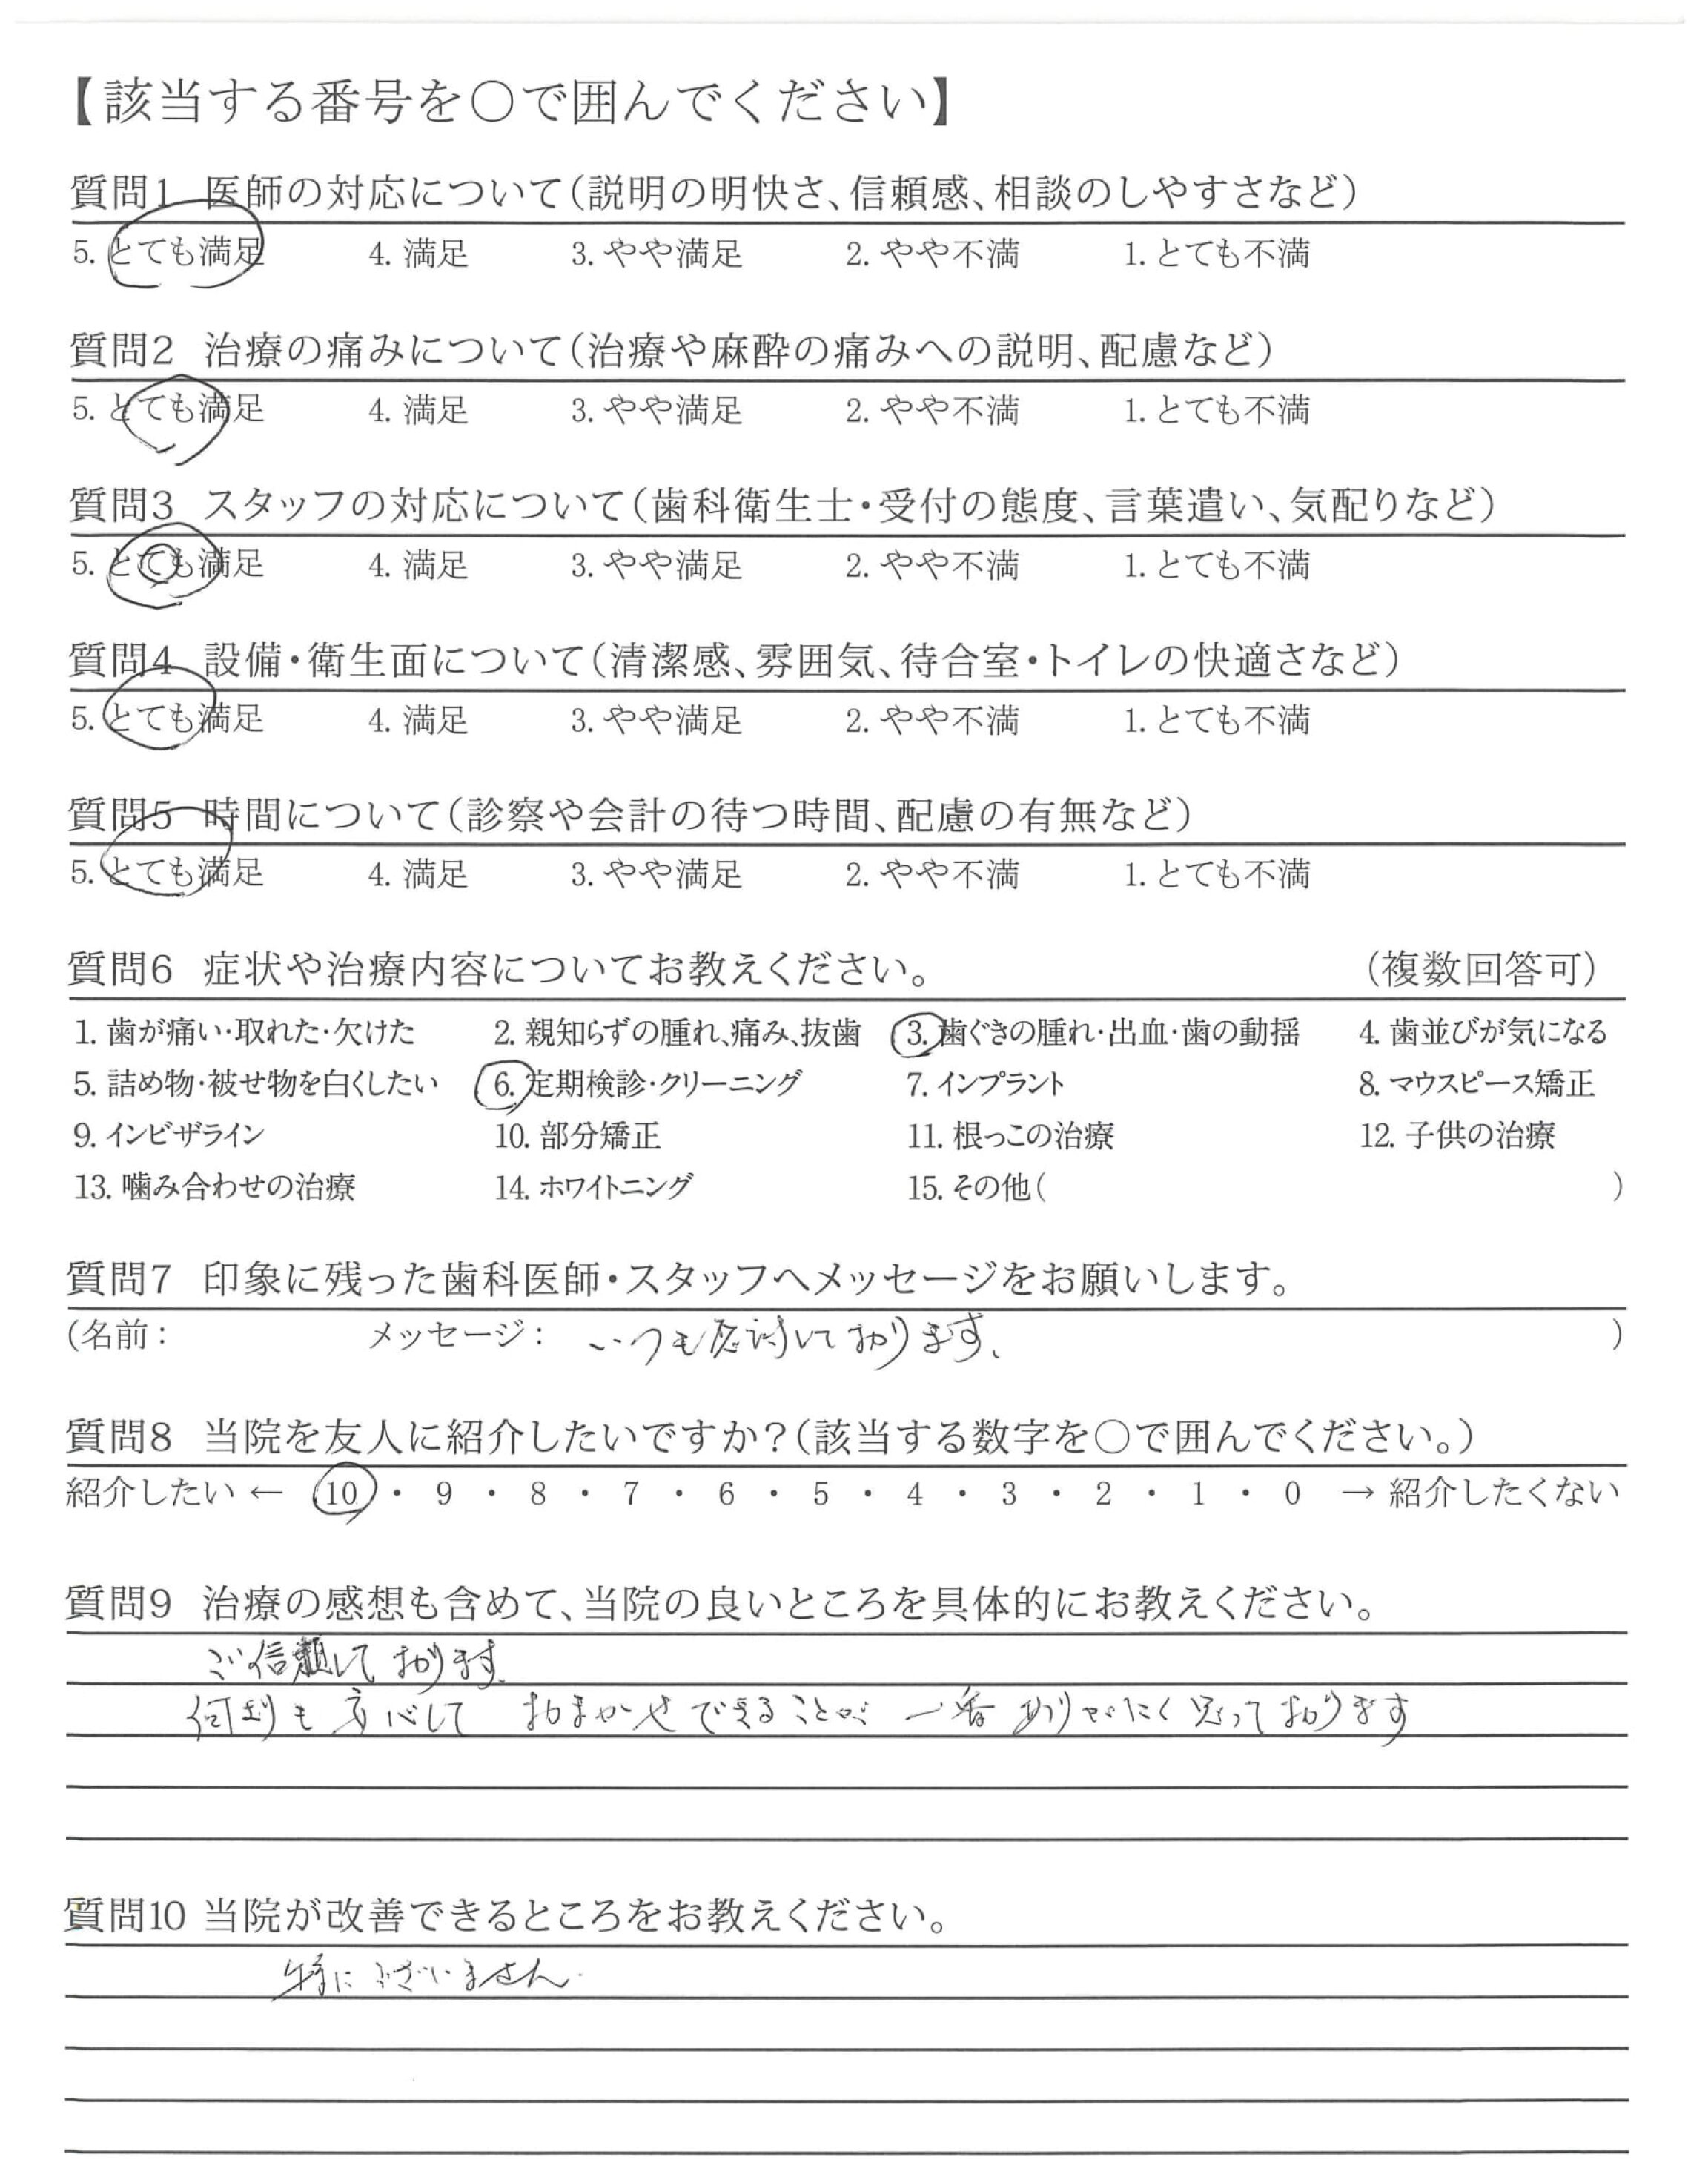 【該当する番号を〇で囲んでください】
質問1 医師の対応について(説明の明快さ、信頼感、相談のしやすさなど)
5. とても満足 4. 満足 3. やや満足 2. やや不満 1. とても不満
質問2 治療の痛みについて(治療や麻酔の痛みへの説明、配慮など)
5. とても満足 4. 満足 3. やや満足 2. やや不満 1. とても不満
質問3 スタッフの対応について(歯科衛生士・受付の態度、言葉遣い、気配りなど)
5. とても満足 4. 満足 3. やや満足 2. やや不満 1. とても不満
質問4 設備・衛生面について(清潔感、雰囲気、待合室・トイレの快適さなど)
5. とても満足 4. 満足 3. やや満足 2. やや不満 1. とても不満
質問5 時間について(診察や会計の待つ時間、配慮の有無など)
5. とても満足 4. 満足 3. やや満足 2. やや不満 1. とても不満
質問6 症状や治療内容についてお教えください。 (複数回答可)
1. 歯が痛い・取れた・欠けた 2. 親知らずの腫れ、痛み、抜歯 3. 歯ぐきの腫れ・出血・歯の動揺 4. 歯並びが気になる
5. 詰め物・被せ物を白くしたい 6. 定期検診・クリーニング 7. インプラント 8. マウスピース矯正
9. インビザライン 10. 部分矯正 11. 根っこの治療 12. 子供の治療
13. 噛み合わせの治療 14. ホワイトニング 15. その他( )
質問7 印象に残った歯科医師・スタッフへメッセージをお願いします。
(名前: メッセージ: いつも感謝しております、 )
質問8 当院を友人に紹介したいですか?(該当する数字を〇で囲んでください。)
紹介したい ← 10 ・ 9 ・ 8 ・ 7 ・ 6 ・ 5 ・ 4 ・ 3 ・ 2 ・ 1 ・ 0 → 紹介したくない
質問9 治療の感想も含めて、当院の良いところを具体的にお教えください。
ご信頼しております。
何よりも安心して おまかせできることが 一番 ありがたく思っております
質問10 当院が改善できるところをお教えください。
特にございません.